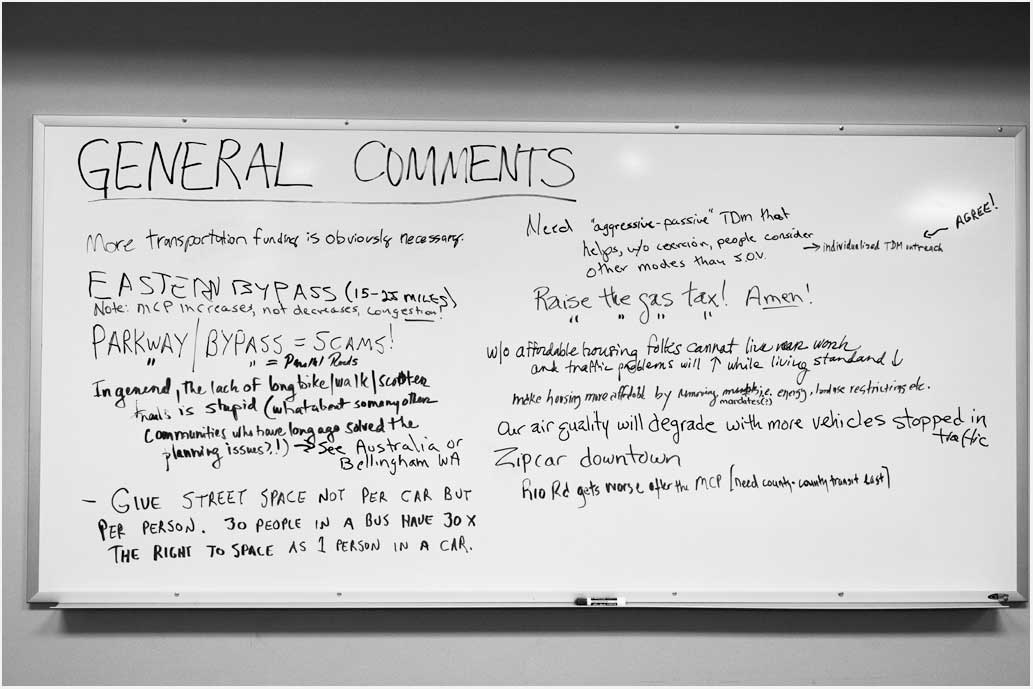 GENERAL COMMENTS
More transportation funding is obviously necessary.
EASTERN BYPASS (15-25 MILES)
Note: MCP increases, not decreases, congestion!
PARKWAY / BYPASS = SCAMS!
" " = Parallel Roads
In general, the lack of long bike/walk/scooter
trails is stupid (what about so many other
communities who have long ago solved the
planning issues?!) → See Australia or
Bellingham WA
- GIVE STREET SPACE NOT PER CAR BUT
PER PERSON. 30 PEOPLE IN A BUS HAVE 30X
THE RIGHT TO SPACE AS 1 PERSON IN A CAR.
Need "aggressive-passive" TDM that
helps, w/o coercion, people consider
other modes than S.O.V.
→ individualized TDM outreach
← AGREE!
Raise the gas tax! Amen!
" " " "
w/o affordable housing folks cannot live near work
and traffic problems will ↑ while living standard ↓
make housing more affordable by removing i.e. energy, land use restrictions etc.
mandates(?)
Our air quality will degrade with more vehicles stopped in
traffic
Zipcar downtown
Rio Rd gets worse after the MCP [need county-county transit east]